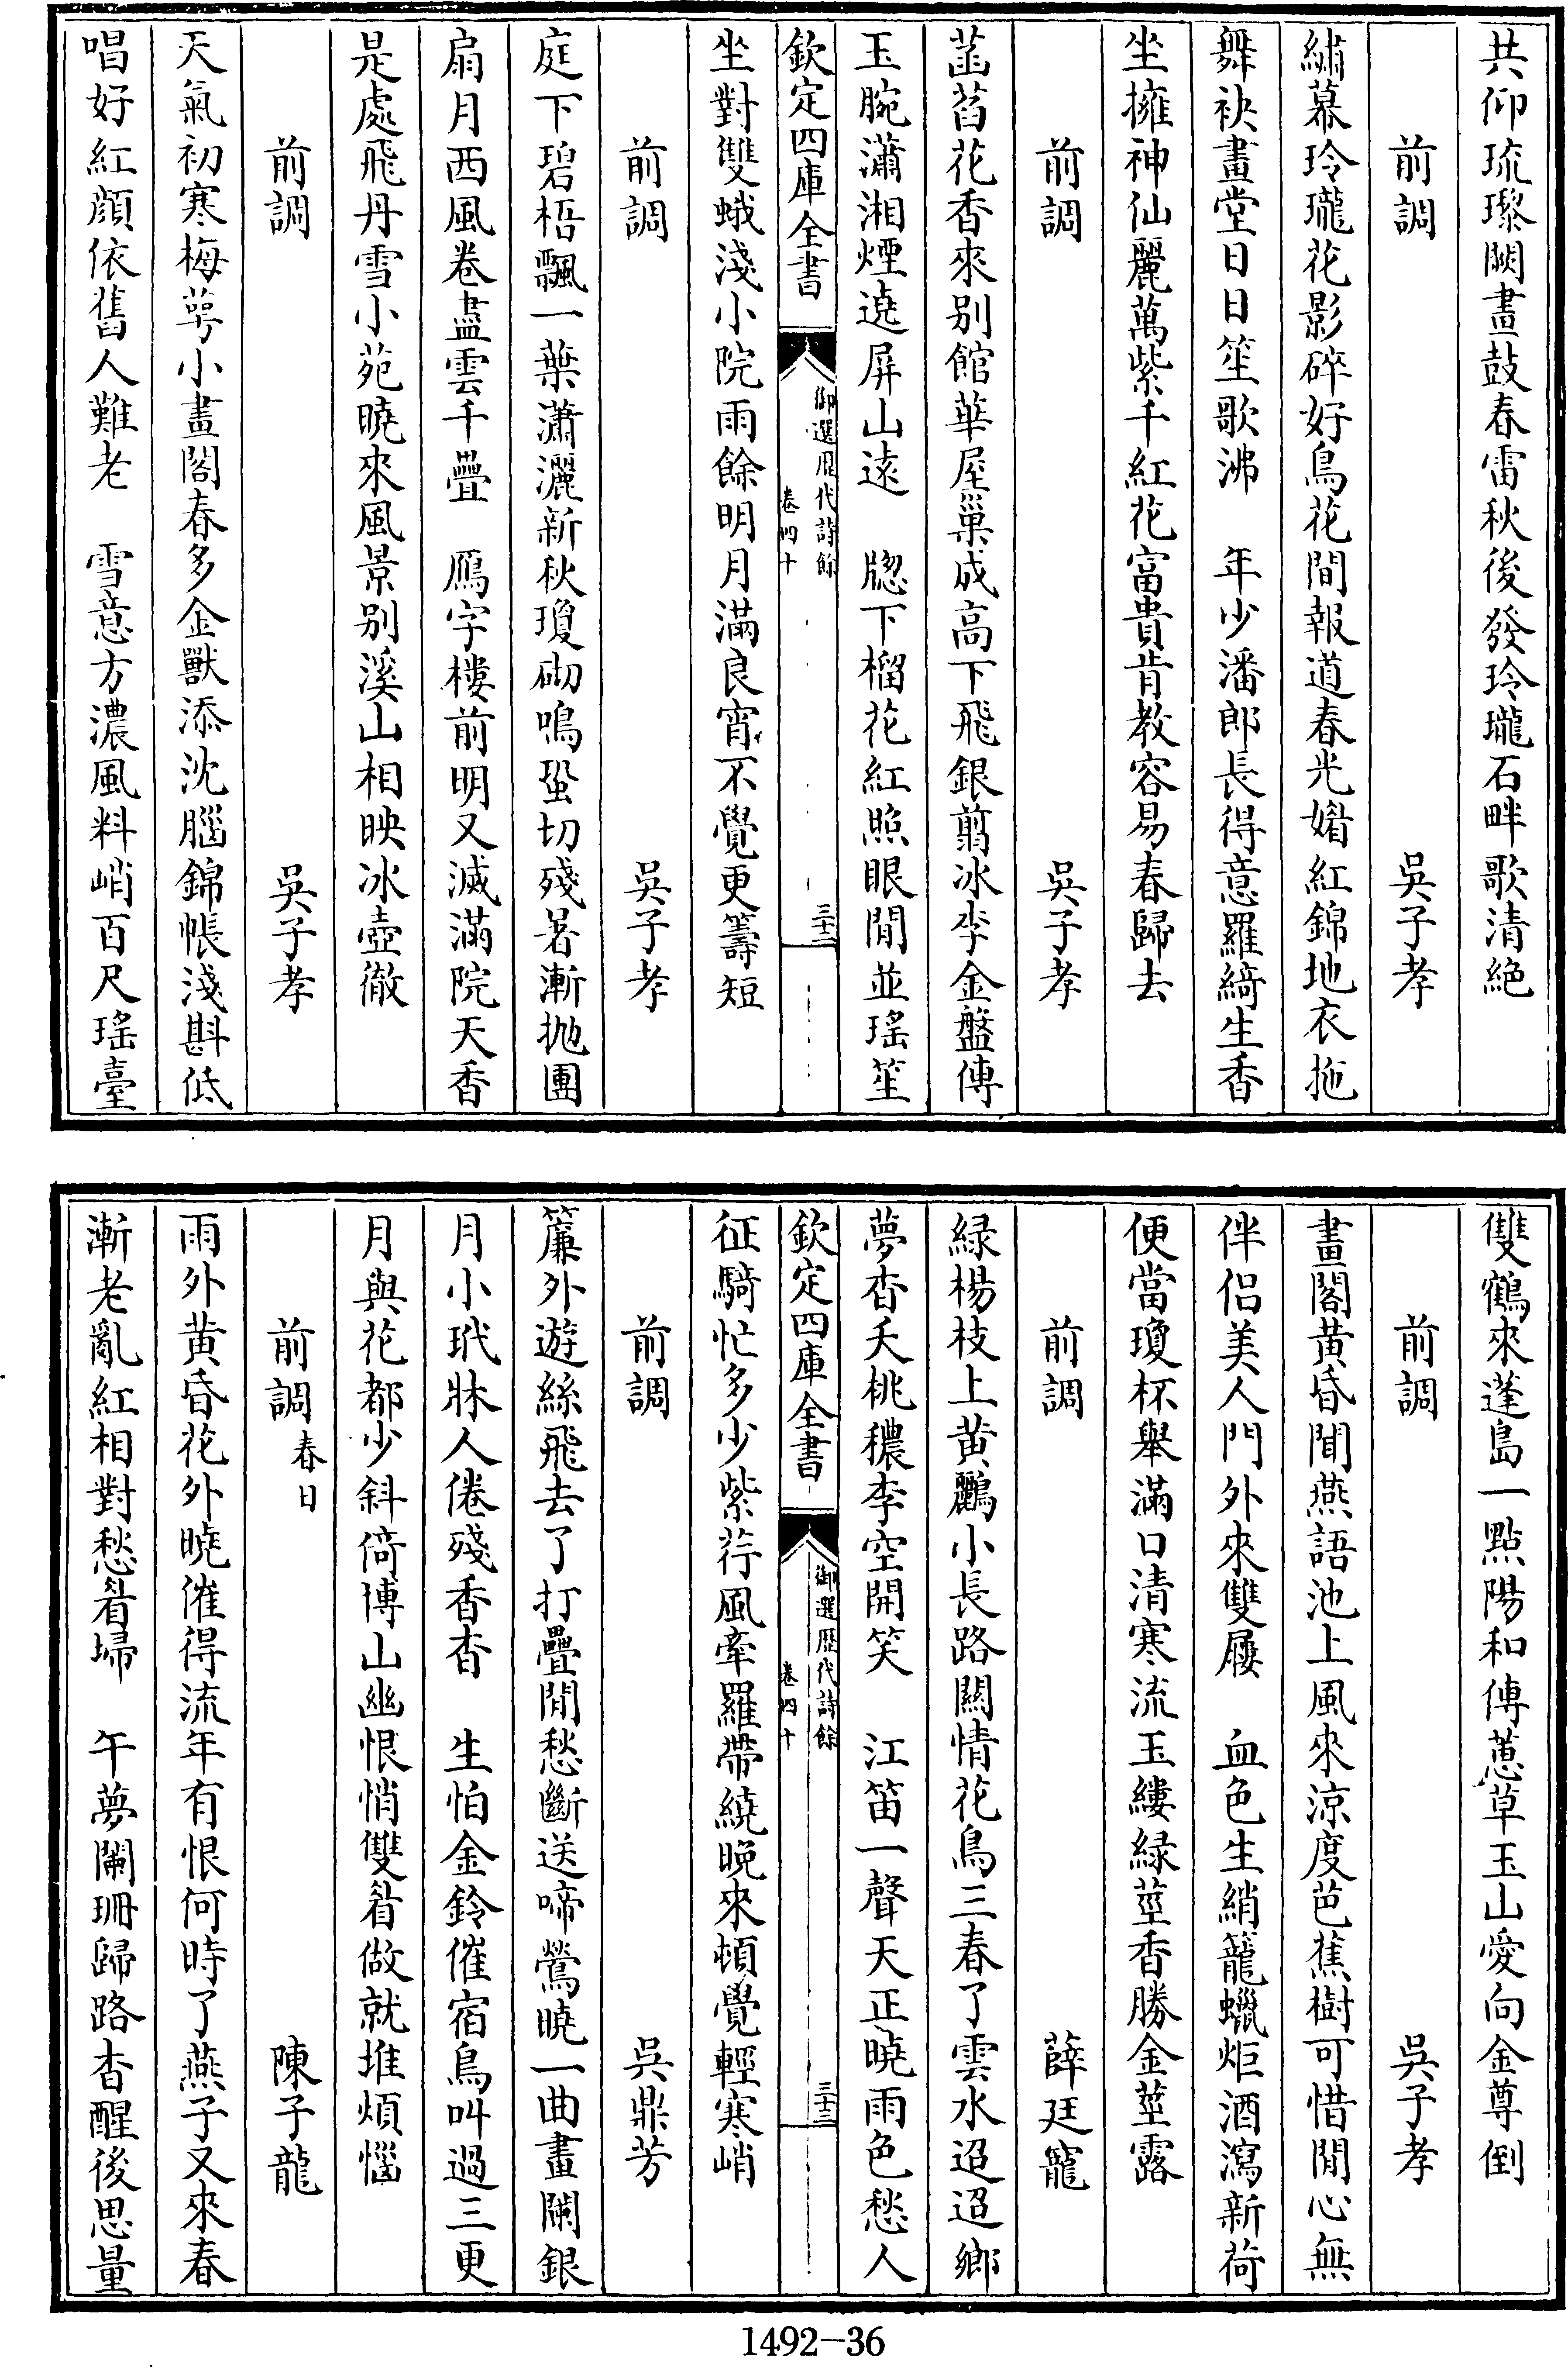 共仰琉瓈闕畫鼓春雷秋後發玲瓏石畔歌清絕
前調　吳子孝
繡幕玲瓏花影碎好鳥花間報道春光媚紅錦地衣拖
舞袂畫堂日日笙歌沸　年少潘郎長得意羅綺生香
坐擁神仙麗萬紫千紅花富貴肯教容易春歸去
前調　吳子孝
菡萏花香來别館華屋巢成高下飛銀翦冰李金盤傳
玉腕瀟湘煙遶屏山遠　牕下榴花紅照眼閒並瑤笙
欽定四庫全書　御選歷代詩餘　卷四十　三十二
坐對雙蛾淺小院雨餘明月滿良宵不覺更籌短
前調　吳子孝
庭下碧梧飄一葉瀟灑新秋瓊砌鳴蛩切殘暑漸抛團
扇月西風卷盡雲千疊　鴈字樓前明又滅滿院天香
是處飛丹雪小苑曉來風景别溪山相映冰壺徹
前調　吳子孝
天氣初寒梅萼小畫閣春多金獸添沈腦錦帳淺斟低
唱好紅顔依舊人難老　雪意方濃風料峭百尺瑤臺
雙鶴來蓬島一點陽和傳蕙草玉山愛向金尊倒
前調　吳子孝
畫閣黄昏聞燕語池上風來涼度芭蕉樹可惜閒心無
伴侣美人門外來雙屨　血色生綃籠蠟炬酒瀉新荷
便當瓊杯舉滿口清寒流玉縷緑莖香勝金莖露
前調　薛廷寵
緑楊枝上黄鸝小長路闗情花鳥三春了雲水迢迢鄉
夢杳夭桃穠李空開笑　江笛一聲天正曉雨色愁人
欽定四庫全書　御選歷代詩餘　卷四十　三十三
征騎忙多少紫荇風牽羅帶繞晚來頓覺輕寒峭
前調　吳鼎芳
簾外遊絲飛去了打疊閒愁斷送啼鶯曉一曲畫闌銀
月小玳牀人倦殘香杳　生怕金鈴催宿鳥叫過三更
月與花都少斜倚博山幽恨悄雙眉做就堆煩惱
前調春日　陳子龍
雨外黄昏花外曉催得流年有恨何時了燕子又來春
漸老亂紅相對愁眉埽　午夢闌珊歸路杳醒後思量
1492-36